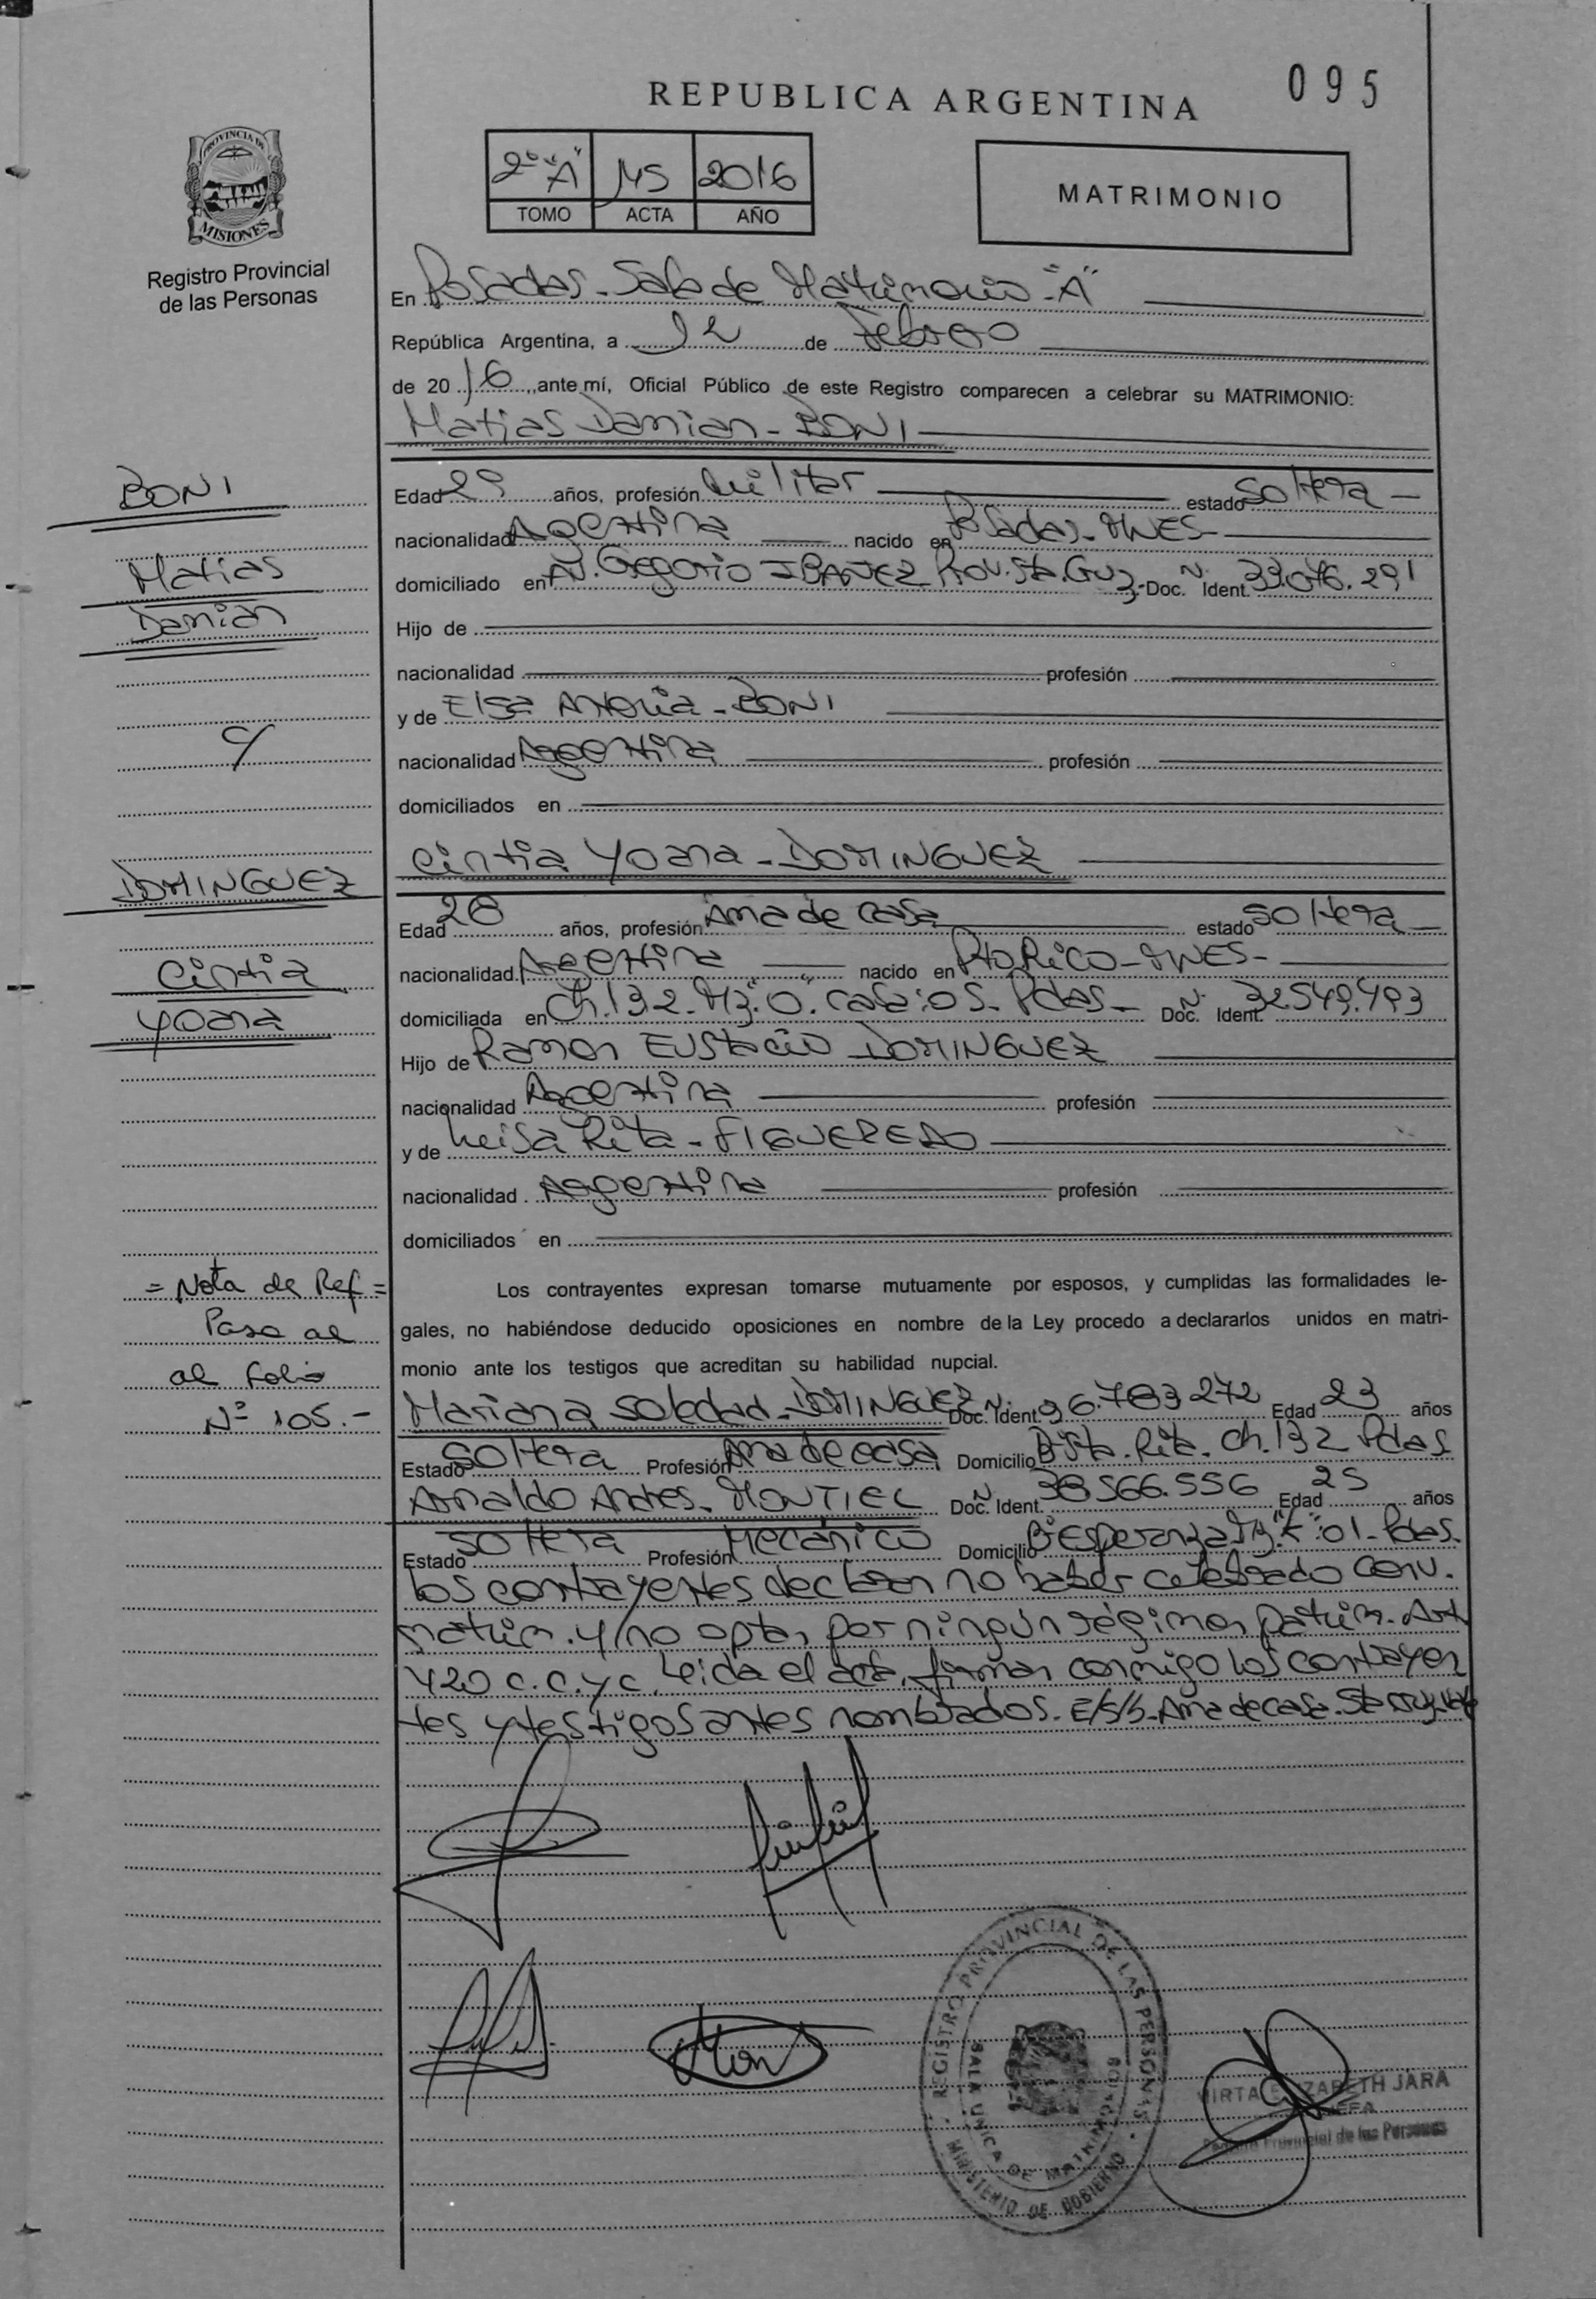 095
REPUBLICA ARGENTINA
2° "A" 2016
TOMO ACTA AÑO
MATRIMONIO
PROVINCIA DE
MISIONES
Registro Provincial
de las Personas
En Posadas - Sala de Matrimonio - "A"
República Argentina, a 12 de Febrero
de 2016, ante mí, Oficial Público de este Registro comparecen a celebrar su MATRIMONIO:
Matias Damian - BONI
BONI
Matias
Damian
c/
DOMINGUEZ
Cintia
Yoana
Edad años, profesión Militar estado Soltera
nacionalidad Argentina nacido en Posadas - Mnes -
domiciliado en Av. Gregorio IBAÑEZ Prov. Sta. Cruz - Doc. Ident. N° 33.076.291
Hijo de
nacionalidad profesión
y de Elsa - BONI
nacionalidad Argentina profesión
domiciliados en
Cintia Yoana - DOMINGUEZ
Edad 28 años, profesión Ama de casa estado Soltera
nacionalidad Argentina nacido en Pto Rico - Mnes -
domiciliada en Ch. 132 - Mz. "O" casa: 05 - Pdas - Doc. Ident. N° 32.549.493
Hijo de Ramon Eustacio DOMINGUEZ
nacionalidad Argentina profesión
y de Luisa Rita - FIGUEREDO
nacionalidad Argentina profesión
domiciliados en
= Nota de Ref =
Pasa al
al folio
N° 105.-
Los contrayentes expresan tomarse mutuamente por esposos, y cumplidas las formalidades le-
gales, no habiéndose deducido oposiciones en nombre de la Ley procedo a declararlos unidos en matri-
monio ante los testigos que acreditan su habilidad nupcial.
Mariana Soledad - DOMINGUEZ Doc. Ident. N° 36.783.272 Edad 23 años
Estado Soltera Profesión Ama de casa Domicilio B° Sta. Rita. Ch. 132 Pdas
Arnaldo Andres - MONTIEL Doc. Ident. N° 38566.556 Edad 25 años
Estado Soltera Profesión Mecánico Domicilio B° Esperanza Mz. "K": 01 - Pdas.
Los contrayentes declaran no haber celebrado conv.
matrim. y no optan por ningún régimen patrim. Art
420 C.C.y C. Leida el acta, firman conmigo los contrayen
tes y testigos antes nombrados. E/S/b - Ama de casa.
REGISTRO PROVINCIAL DE LAS PERSONAS
SALA UNICA DE MATRIMONIO
MINISTERIO DE GOBIERNO
MIRTA ELIZABETH JARA
JEFA
Registro Provincial de las Personas